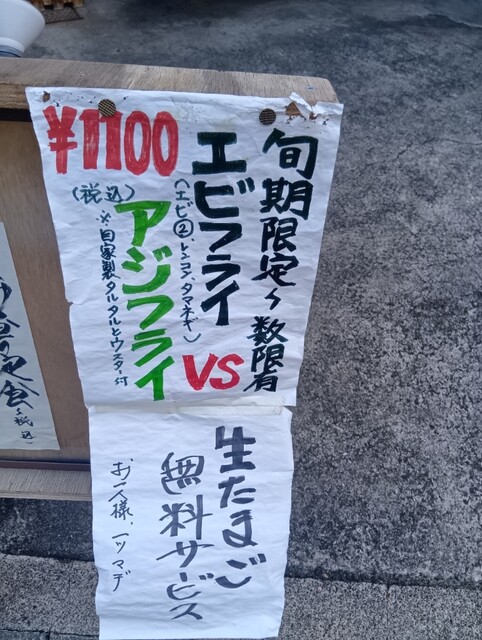 旬期限定〜数限有
エビフライ
VS
(エビ②、レンコン、タマネギ)
アジフライ
¥1100
(税込)
※自家製タルタルとウスター付
生たまご
無料サービス
お一人様、一ツマデ
定食